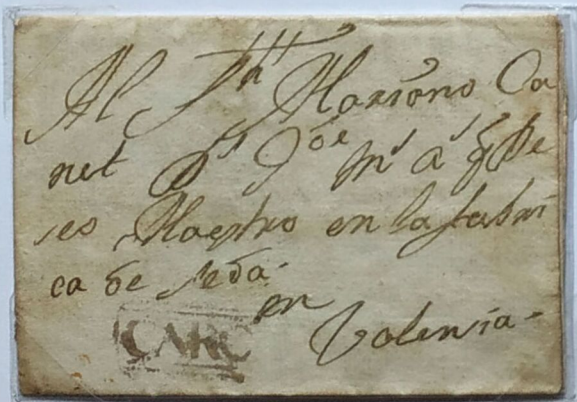 Al Sr. Mariano Ca
net Ps. Gde ms. as.
es Maestro en la fabri
ca de seda.
en
Valensia-
CARC